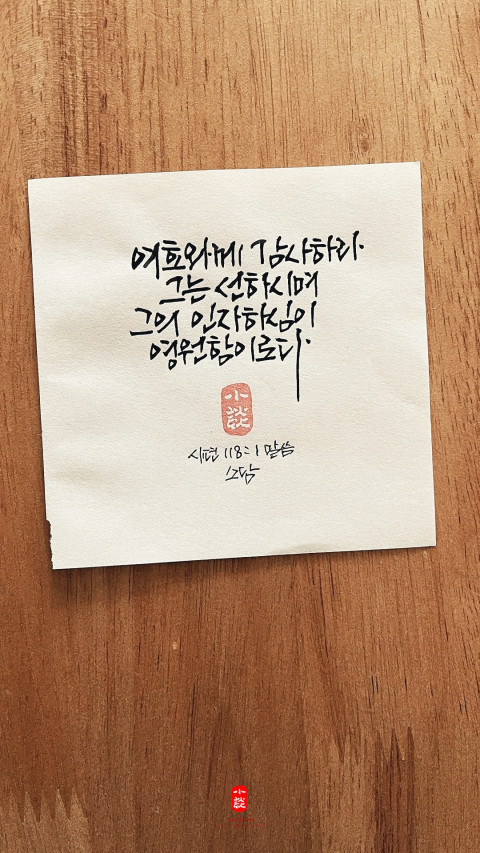 여호와께 감사하라.
그는 선하시며
그의 인자하심이
영원함이로다.
小
談
시편 118:1 말씀
소담
小
談